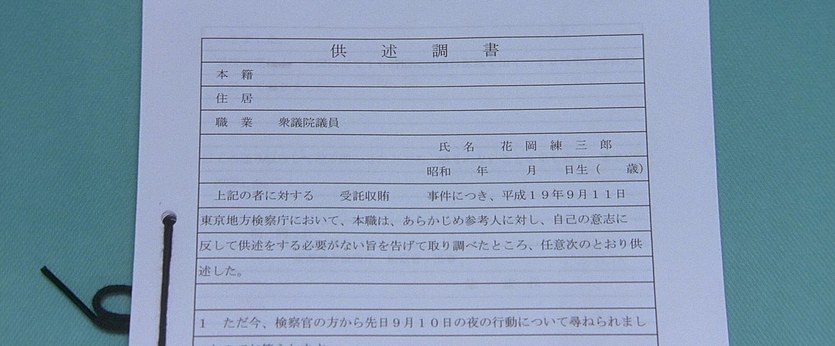 供述調書
本籍
住居
職業 衆議院議員
氏名 花岡練三郎
昭和 年 月 日生（ 歳）
上記の者に対する 受託収賄 事件につき、平成１９年９月１１日
東京地方検察庁において、本職は、あらかじめ参考人に対し、自己の意志に
反して供述をする必要がない旨を告げて取り調べたところ、任意次のとおり供
述した。
１ ただ今、検察官の方から先日９月１０日の夜の行動について尋ねられまし